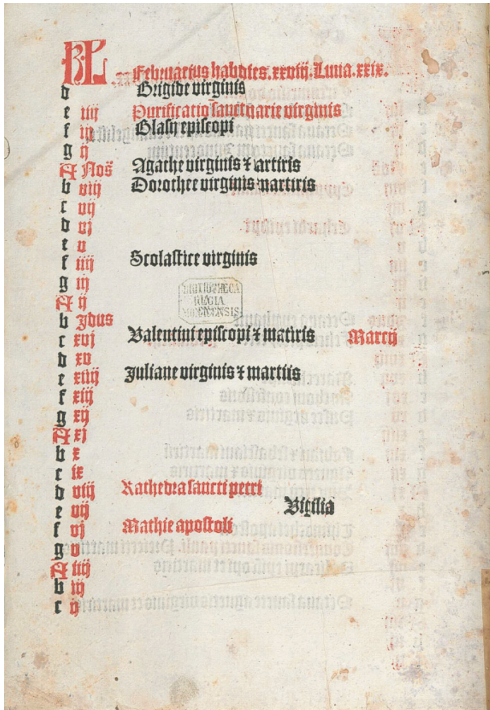 KL Februarius habdies.xxviij.Luna.xxix.
d Brigide virginis
e iiij Purificatio sancte marie virginis
f iij Blasij episcopi
g ij
A Nos Agathe virginis ⁊ martiris
b viij Dorothee virginis martiris
c vij
d vj
e v
f iiij Scolastice virginis
g iij
A ij
b Idus
c xvj Valentini episcopi ⁊ martiris Marcij
d xv
e xiiij Juliane virginis ⁊ martiris
f xiij
g xij
A xj
b x
c ix
d viij Kathedra sancti petri
e vij Vigilia
f vj Mathie apostoli
g v
A iiij
b iij
c ij
BIBLIOTHECA
REGIA
MONACENSIS